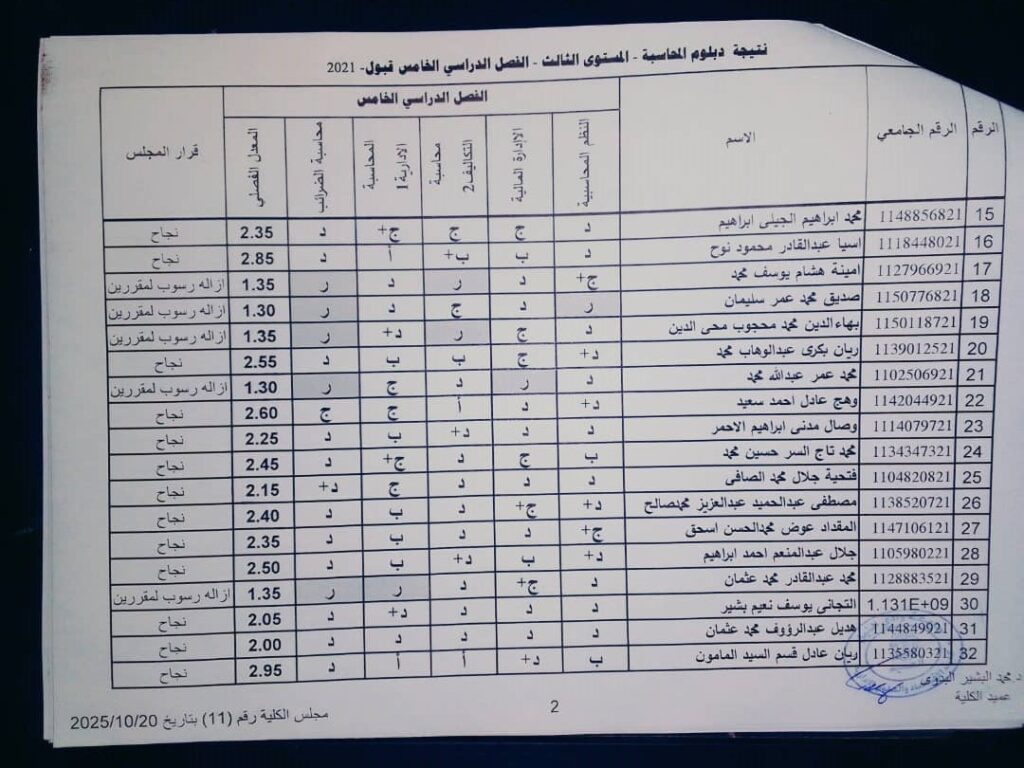 نتيجة دبلوم المحاسبة - المستوى الثالث - الفصل الدراسي الخامس قبول- 2021
الرقم الرقم الجامعي الاسم الفصل الدراسي الخامس قرار المجلس
النظم المحاسبية الاإدارة المالية محاسبة التكاليف2 المحاسبة الادارية1 محاسبة الضرائب المعدل الفصلي
15 1148856821 محمد ابراهيم الجيلى ابراهيم د ج ج ج+ د 2.35 نجاح
16 1118448021 اسيا عبدالقادر محمود نوح د ب ب+ أ د 2.85 نجاح
17 1127966921 امينة هشام يوسف محمد ج+ د ر د ر 1.35 ازاله رسوب لمقررين
18 1150776821 صديق محمد عمر سليمان ر د ج د ر 1.30 ازاله رسوب لمقررين
19 1150118721 بهاءالدين محمد محجوب محى الدين د ج ر د+ ر 1.35 ازاله رسوب لمقررين
20 1139012521 ريان بكرى عبدالوهاب محمد د+ ج ب ب د 2.55 نجاح
21 1102506921 محمد عمر عبدالله محمد د ر د ج ر 1.30 ازاله رسوب لمقررين
22 1142044921 وهج عادل احمد سعيد د+ د أ ج ج 2.60 نجاح
23 1114079721 وصال مدنى ابراهيم الاحمر د د د+ ب د 2.25 نجاح
24 1134347321 محمد تاج السر حسين محمد ب ج د ج+ د 2.45 نجاح
25 1104820821 فتحية جلال محمد الصافى د د د ج د+ 2.15 نجاح
26 1138520721 مصطفى عبدالحميد عبدالعزيز محمدصالح د+ ج+ د ب د 2.40 نجاح
27 1147106121 المقداد عوض محمدالحسن اسحق ج+ د د ب د 2.35 نجاح
28 1105980221 جلال عبدالمنعم احمد ابراهيم د+ ب د+ ب د 2.50 نجاح
29 1128883521 محمد عبدالقادر محمد عثمان د ج+ د ر ر 1.35 ازاله رسوب لمقررين
30 1.131E+09 التجانى يوسف نعيم بشير د د د د+ د 2.05 نجاح
31 1144849921 هديل عبدالرؤوف محمد عثمان د د د د د 2.00 نجاح
32 1135580321 ريان عادل قسم السيد المامون ب د+ أ أ د 2.95 نجاح
د.محمد البشير البدوى
عميد الكلية
2
مجلس الكلية رقم (11) بتاريخ 2025/10/20